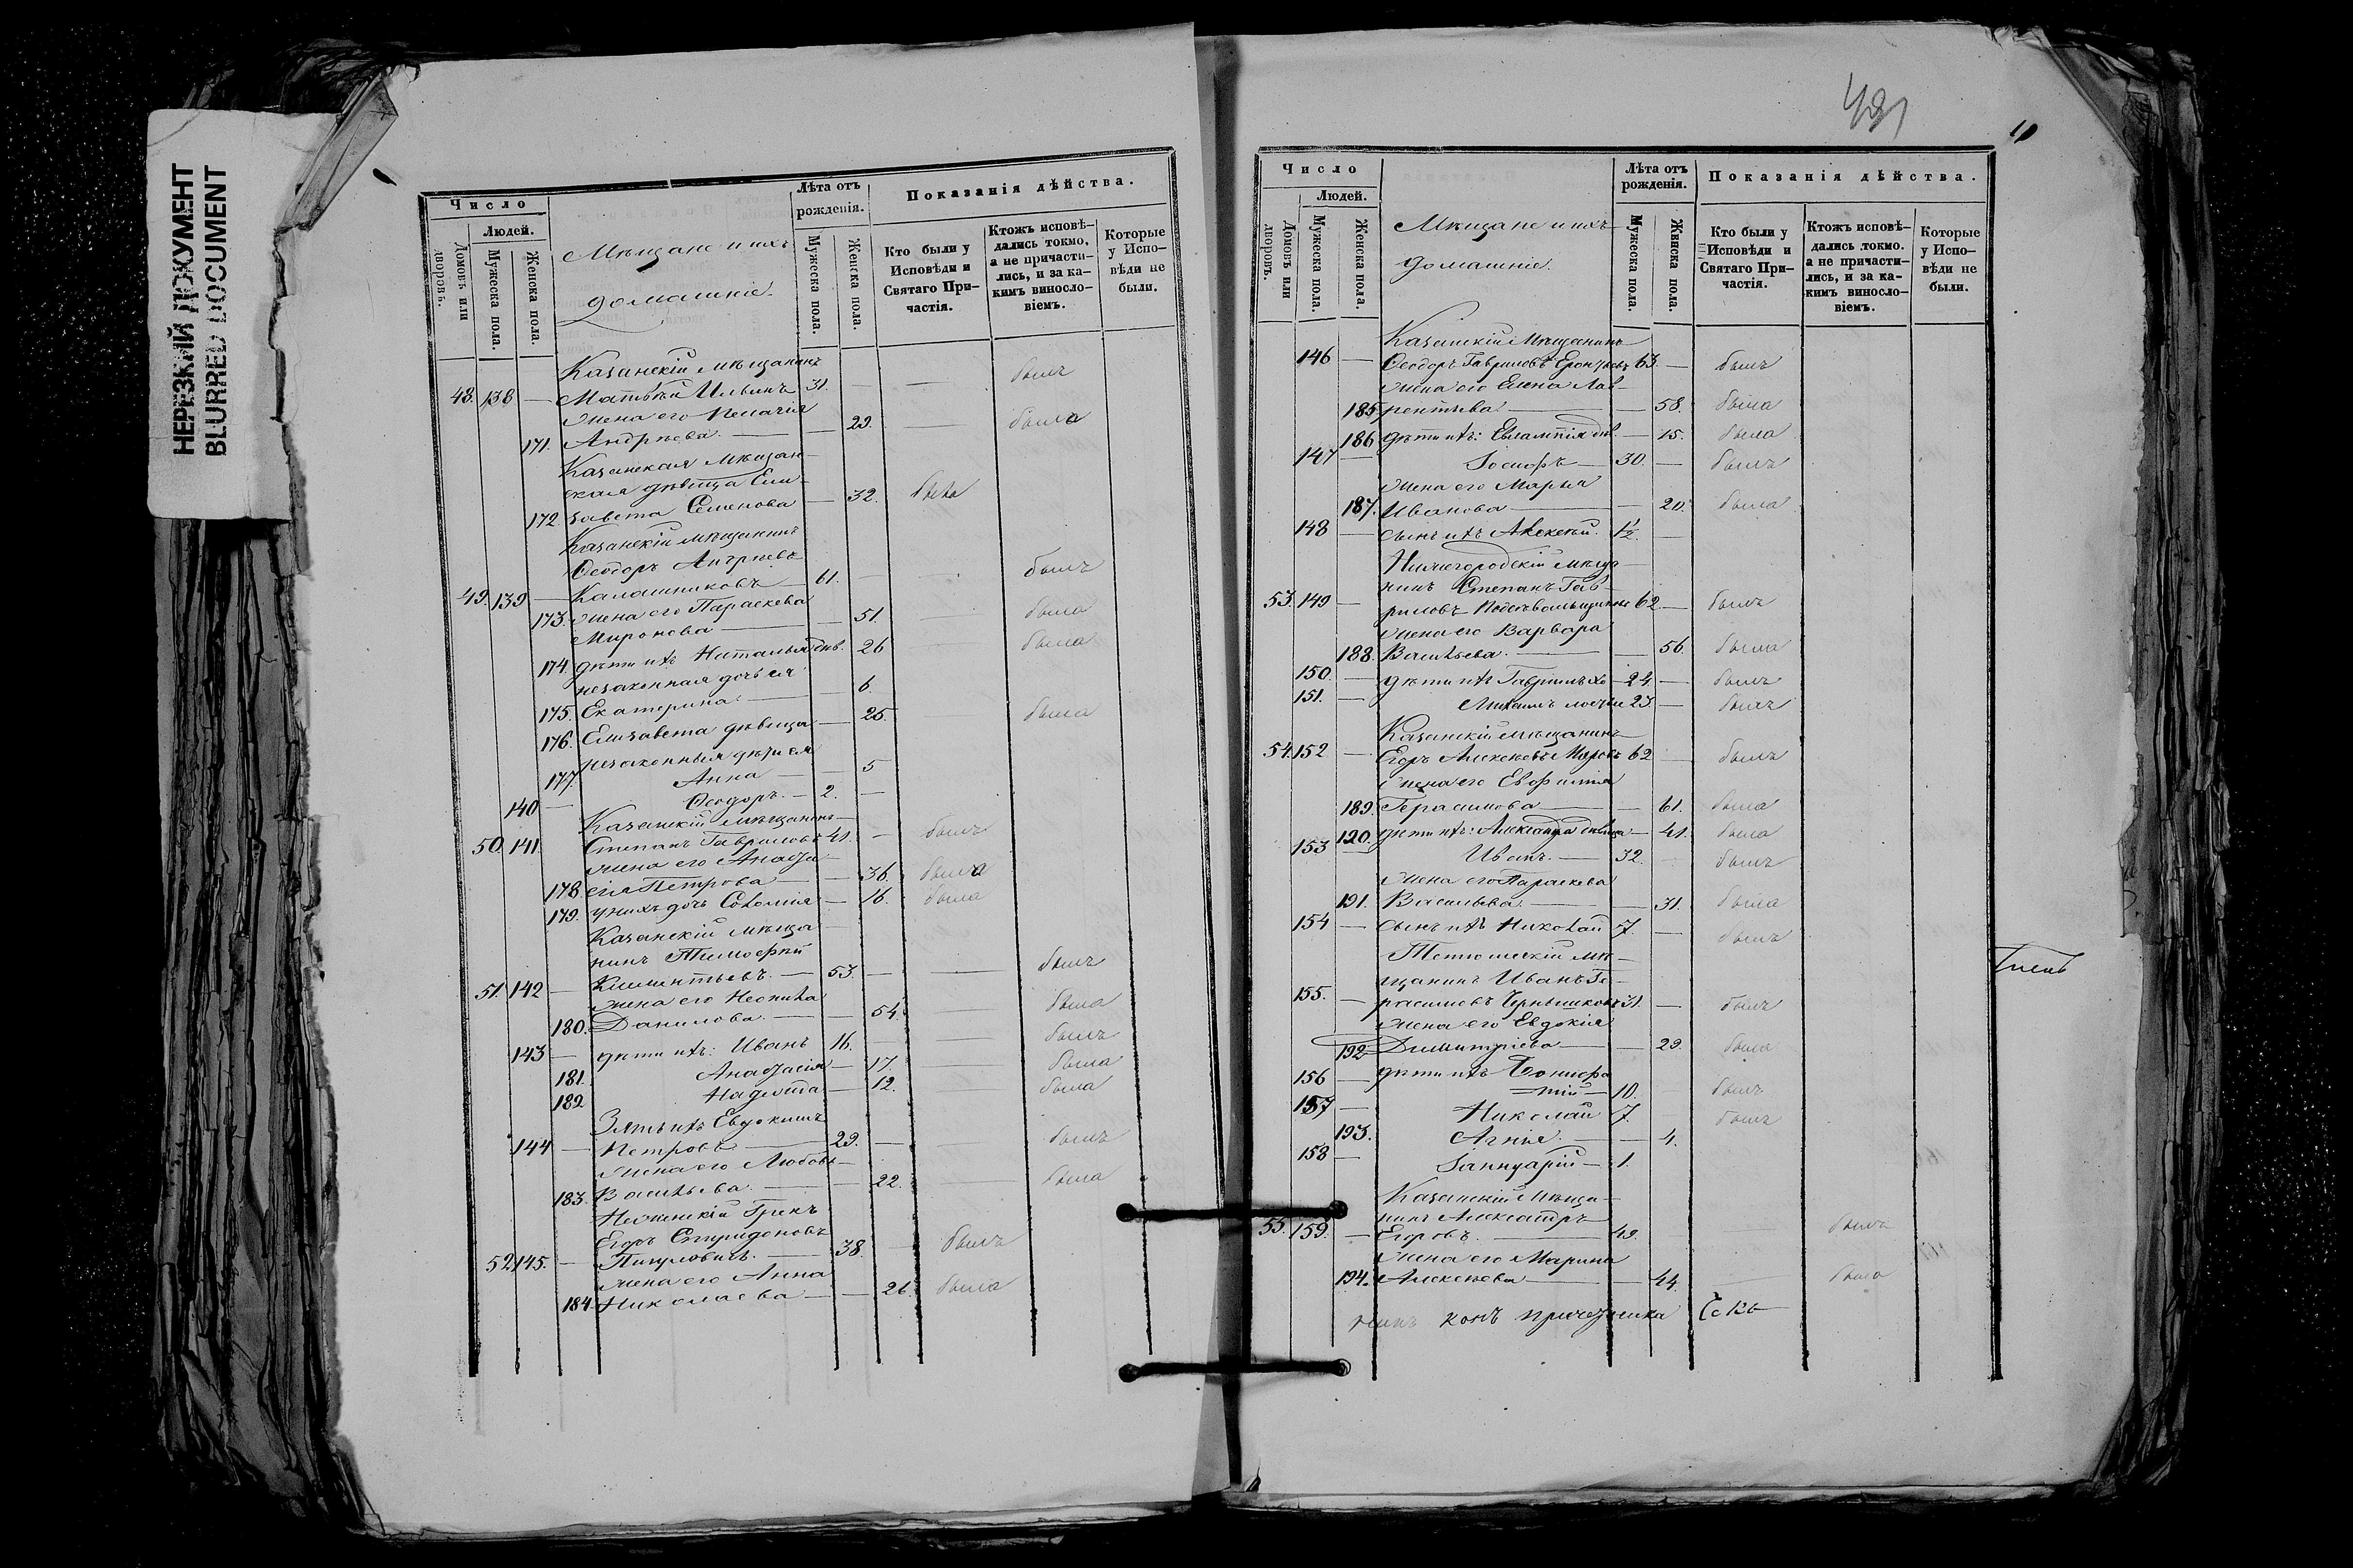 НЕРЕЗКИЙ ДОКУМЕНТ
BLURRED DOCUMENT
Число
Людей.
Домовъ или дворовъ.
Мужеска пола.
Женска пола.
Мѣщане и ихъ
домашніе.
Лѣта отъ рожденія.
Мужеска пола.
Женска пола.
Показанія дѣйства.
Кто были у Исповѣди и Святаго Причастія.
Ктожъ исповѣдались токмо, а не причастились, и за какимъ винословіемъ.
Которые у Исповѣди не были.
Казанскій мѣщанинъ
48. 138 — Матвѣй Ильинъ 31. — былъ
жена его Пелагія
171. Андреева. — — 29. — была
Казанская мѣщан-
ская дѣвица Ели-
172. завета Семенова — 32. была
Казанскій мѣщанинъ
Ѳеодоръ Андреевъ
49. 139 — Калашниковъ — 61. — былъ
173. жена его Параскева
Миронова — — 51. — была
174. дѣти ихъ Наталья дѣв. 26 была
незаконная дочь ея
175. Екатерина. — — 6.
176. Елизавета дѣвица — 25. была
незаконныя дѣти ея
177. Анна — — 5
140 — Ѳеодоръ. — 2. —
Казанскій мѣщанинъ
50. 141. Степанъ Гавриловъ 41. — былъ
жена его Анаста-
178. сія Петрова — — 36. была
179. у нихъ дочь Соломія — 16. была
Казанскій мѣща-
нинъ Тимофей
51. 142 — Климентьевъ. — 53. — — былъ
жена его Неонила
180. Данилова. — — 54. — была
143 — дѣти ихъ: Иванъ 16. — — былъ
181. Анастасія — 17. — была
182 Надежда — 12. — была
Зять ихъ Евдокимъ
144 — Петровъ — 29. — — былъ
жена его Любовь
183. Васильева. — — 22. — была
Нежинскій Грекъ
Егоръ Спиридоновъ
52. 145. — — 38. — былъ
жена его Анна
184. Николаева — — 26. была
491
Число
Людей.
Домовъ или дворовъ.
Мужеска пола.
Женска пола.
Мѣщане и ихъ
домашніе.
Лѣта отъ рожденія.
Мужеска пола.
Женска пола.
Показанія дѣйства.
Кто были у Исповѣди и Святаго Причастія.
Ктожъ исповѣдались токмо. а не причастились, и за какимъ винословіемъ.
Которые у Исповѣди не были.
Казанскій Мѣщанинъ
146 — Ѳеодоръ Гавриловъ 63. — былъ
жена его Елена Лав-
185. рентьева. — — 58. была
186 дѣти ихъ: Евлампія дѣв. — 15. была
147 — Іосифъ — 30. — былъ
жена его Марья
187. Иванова — — 20. была
148 — сынъ ихъ Алексѣй. 1½. —
Нижегородскій мѣща-
нинъ Степанъ Гав-
53. 149 — риловъ 62. — былъ
жена его Варвара
188. Васильева. — — 56. была
150. — дѣти ихъ Гавріилъ — 24. — былъ
151. — Михаилъ 23. — былъ
Казанскій мѣщанинъ
54. 152 — Егоръ Алексѣевъ 62 былъ
жена его Евфимія
189. Герасимова — — 61. была
190. дѣти ихъ: Александра дѣвица — 41. была
153 — Иванъ. — 32. былъ
жена его Параскева
191. Васильева. — — 31. была
154 — сынъ ихъ Николай 7. — былъ
Тетюшскій мѣ-
щанинъ Иванъ Ге-
155. — расимовъ Чернышковъ 31. — былъ
жена его Евдокія
192 Димитріева — — 29. была
156 — дѣти ихъ Бонифа-
тій — 10. былъ
157 — Николай 7. былъ
193. Агнія. — — 4.
158 — Іаннуарій — 1.
Казанскій мѣща-
нинъ Александръ
55. 159. — Егоровъ. — 49. былъ
жена его Марина
194. Алексѣева — — 44. — была